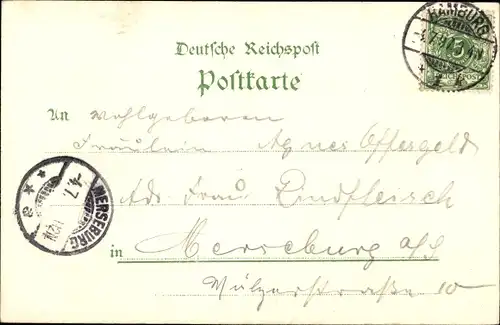 Deutsche Reichspost
Postkarte
An wohlgeboren
Fräulein Agnes Offergeld
Adr. Frau Rindfleisch
in Merseburg a/S
Strasse 10
HAMBURG
REICHSPOST
MERSEBURG
-4.7.